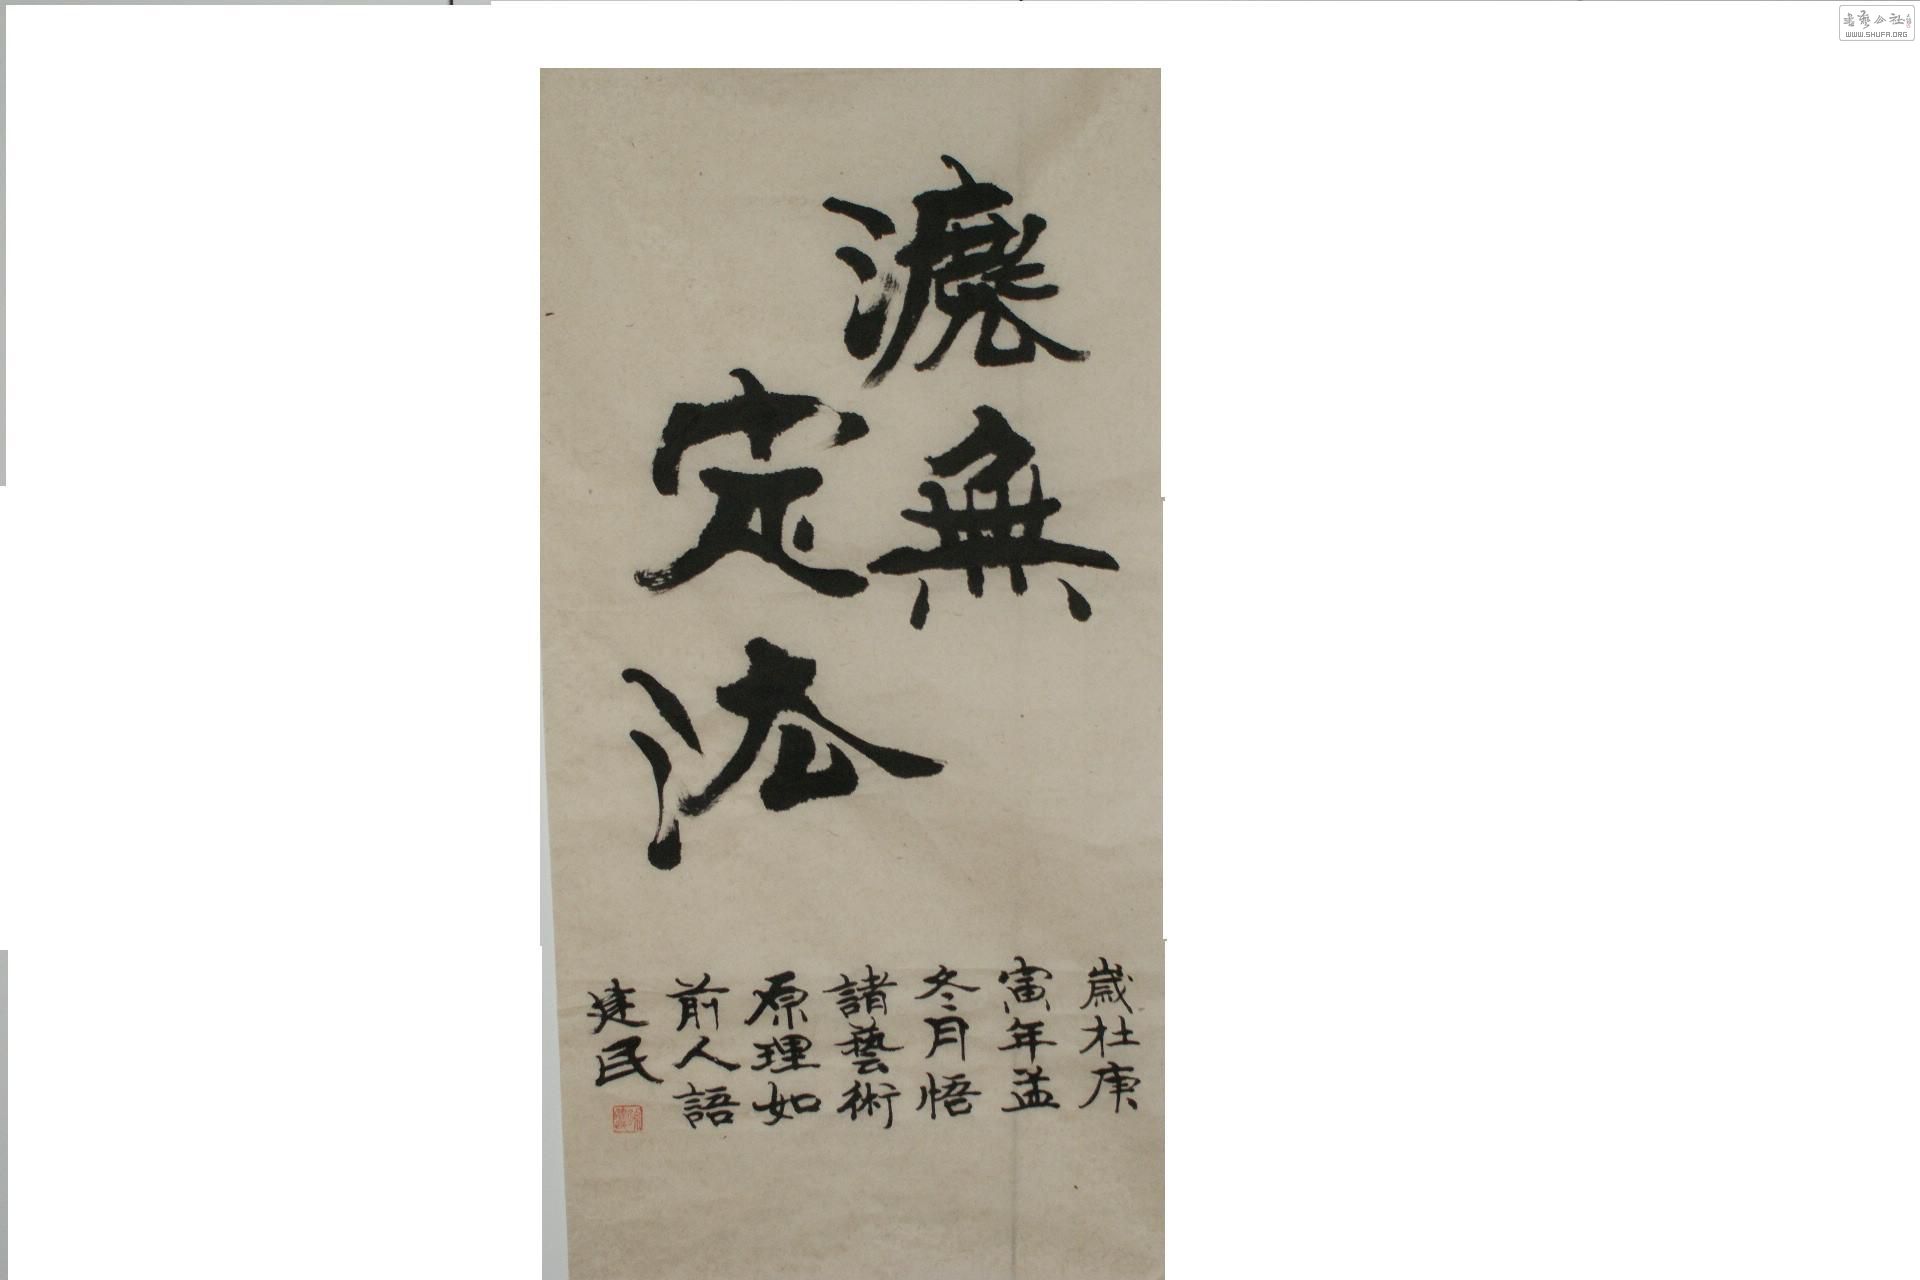 灋無
定法
歲杜庚
寅年孟
冬月悟
諸藝術
原理如
前人語
建民
書藝公社
WWW.SHUFA.ORG